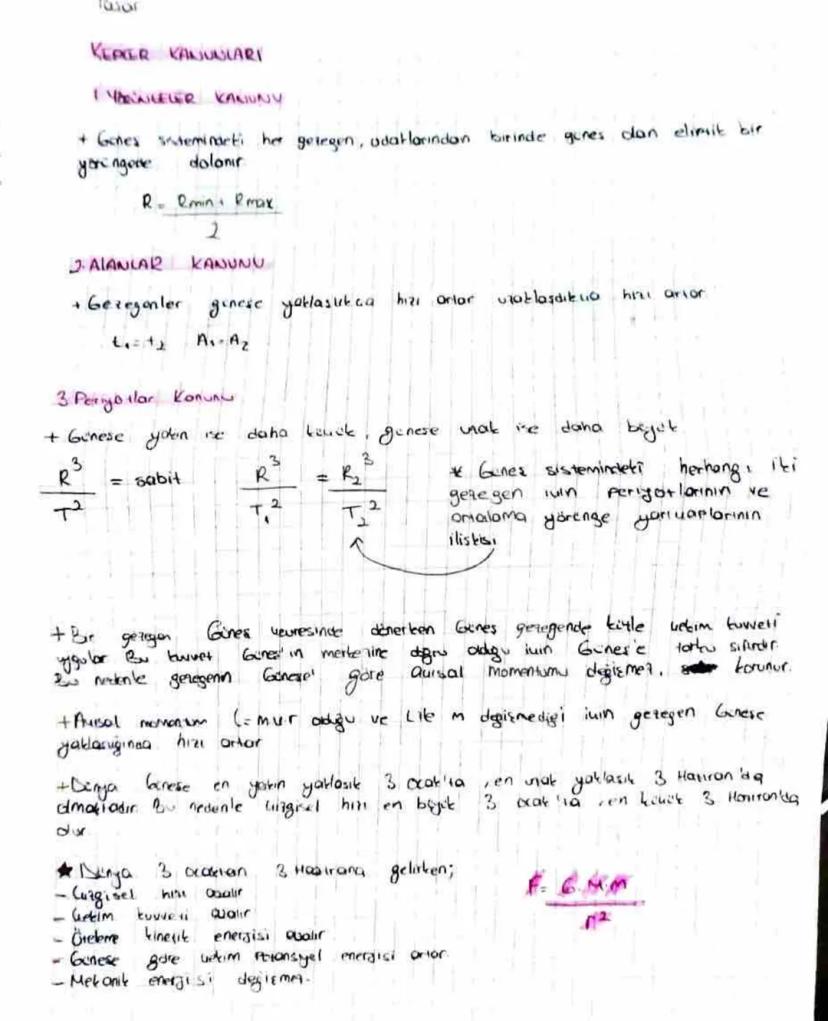 Tasar
KEPLER KANUNLARI
1 YÖRÜNGELER KANUNU
+ Güneş sistemindeki her gezegen, odaklarından birinde güneş olan eliptik bir
yörüngede dolanır
R = Rmin + Rmax
2
2. ALANLAR KANUNU
+ Gezegenler güneşe yaklaştıkca hızı artar uzaklaşdıkca hızı artar
t₁ = t₂ A₁ = A₂
3 Periyotlar Kanunu
+ Güneşe yakın ise daha küçük, güneşe uzak ise daha büyük
R³ / T² = sabit R³ / T₁² = R₂³ / T₂²
* Güneş sistemindeki herhangi iki
gezegen için periyotlarının ve
ortalama yörenge yarıçaplarının
ilişkisi
+ Bir gezegen Güneş çevresinde dönerken Güneş gezegende kütle çekim kuvveti
uygular Bu kuvvet Güneş'in merkezine doğru olduğu için Güneş'e torku sıfırdır
Bu nedenle gezegenin Güneşe' göre açısal momentumu değişmez, korunur.
+ Açısal momentum L = m.v.r olduğu ve L ile m değişmediği için gezegen Güneşe
yaklaşığında hızı artar
+ Dünya Güneşe en yakın yaklaşık 3 Ocak'ta, en uzak yaklaşık 3 Haziran'da
olmaktadır Bu nedenle çizgisel hızı en büyük 3 Ocak'ta, en küçük 3 Haziran'da
olur
★ Dünya 3 ocaktan 3 Hazirana gelirken;
- Çizgisel hızı azalır
- Çekim kuvveti azalır
- Öteleme kinetik enerjisi azalır
- Güneşe göre çekim Potansyel enerjisi artar
- Mekanik enerjisi değişmez.
F = G.M.m
r²